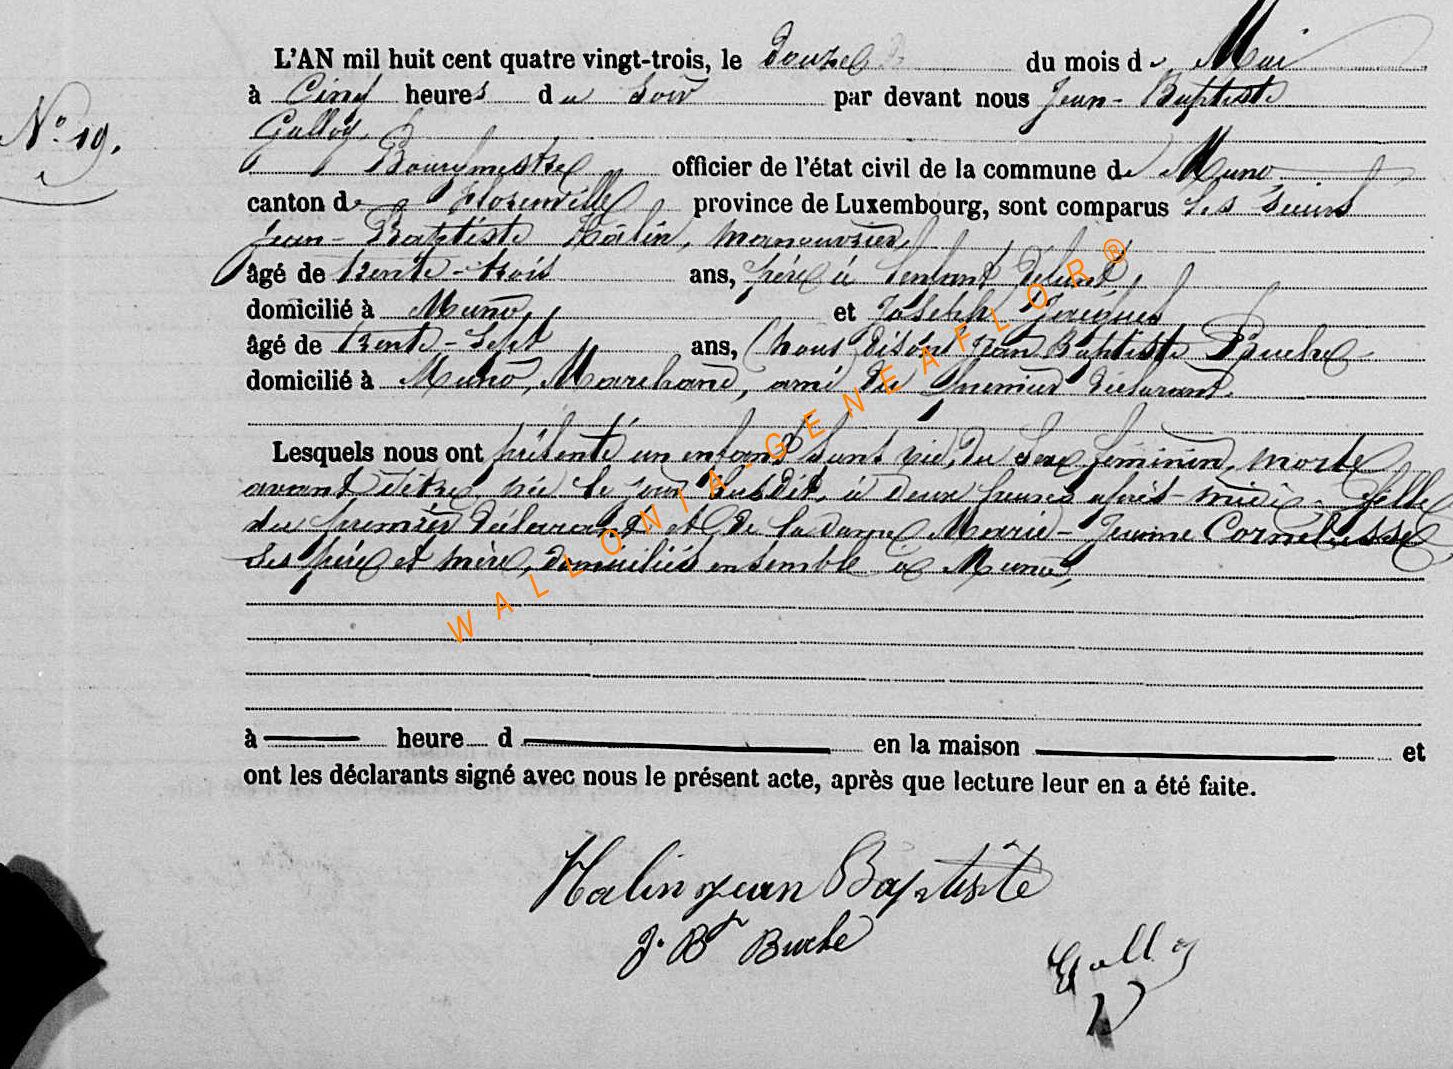 L'AN mil huit cent quatre vingt-trois, le douze du mois de Mai
N° 19.
à Cinq heures du Soir par devant nous Jean-Baptiste
Galloy,
Bourgmestre officier de l'état civil de la commune de Muno,
canton de Florenville province de Luxembourg, sont comparus les sieurs
Jean-Baptiste Halin, manouvrier,
âgé de trente-trois ans, père à l'enfant défunt,
domicilié à Muno, et Joseph Jacques
âgé de trente-sept ans, (nous disons Jean Baptiste Buche
domicilié à Muno, Marchand, ami du premier déclarant.
Lesquels nous ont présenté un enfant sans vie, du sexe féminin, morte
avant d'être née le jour susdit, à deux heures après-midi. fille
du premier déclarant et de la dame Marie-Jeanne Cornelisse
ses père et mère, domiciliés ensemble à Muno,
à heure d en la maison et
ont les déclarants signé avec nous le présent acte, après que lecture leur en a été faite.
Halin jean Baptiste
J. Bte Buche
Galloy
WALLONIA-GENEAFLOR®